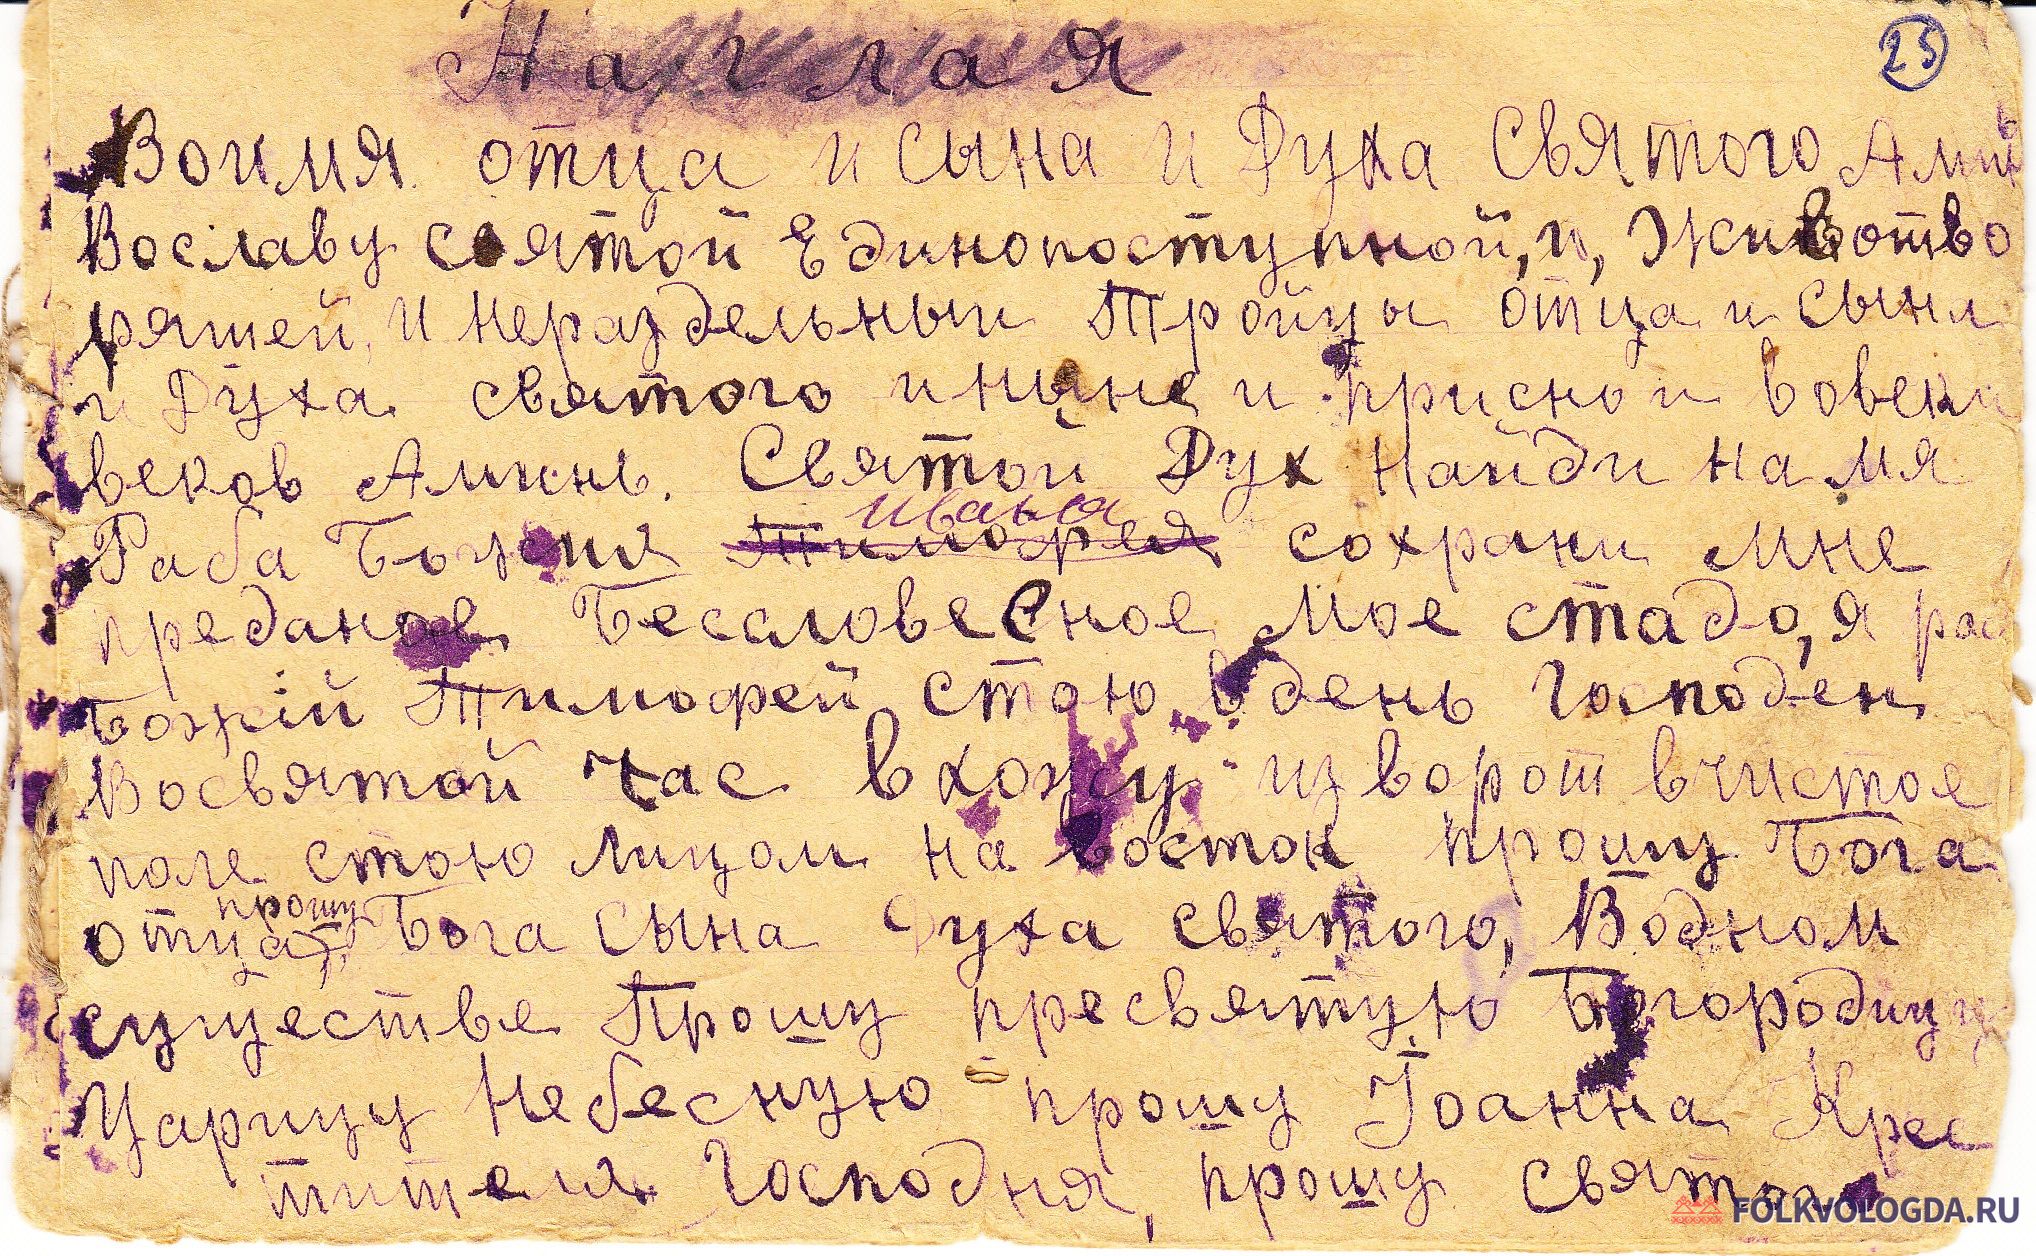 Наглая
25
Воимя отца и сына и Духа Святого Аминь
Вославу святой Единопоступной, и, Животво
ряшей, и нераздельныи Тройцы отца и сына
и Духа святого иныне и присно и вовеки
веков Аминь. Святой Дух Найди на мя
Иванья
Раба Божия Тимофея сохрани мне
преданое Бессловесное Мое стадо, я раб
Божій Тимофей стою вдень Господен
Восвятой час вхожу изворот вчистое
поле стою лицом на восток прошу Бога
прошу
отца, Бога сына Духа святого, Водном
существе Прошу пресвятую Богородицу
Царицу Небесную прошу Іоанна Крес
тителя Господня, прошу святого
FOLKVOLOGDA.RU